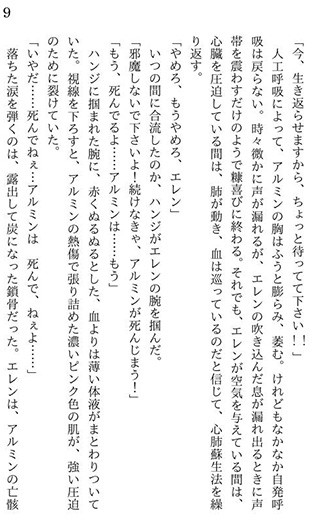 9
「今、生き返らせますから、ちょっと待ってて下さい!!」
人工呼吸によって、アルミンの胸はふうと膨らみ、萎む。けれどもなかなか自発呼
吸は戻らない。時々微かに声が漏れるが、エレンの吹き込んだ息が漏れ出るときに声
帯を震わすだけのようで糠喜びに終わる。それでも、エレンが空気を与えている間は、
心臓を圧迫している間は、肺が動き、血は巡っているのだと信じて、心肺蘇生法を繰
り返す。
「やめろ、もうやめろ、エレン」
いつの間に合流したのか、ハンジがエレンの腕を掴んだ。
「邪魔しないで下さいよ!続けなきゃ、アルミンが死んじまう!」
「もう、死んでるよ……アルミンは……もう」
ハンジに掴まれた腕に、赤くぬるぬるとした、血よりは薄い体液がまとわりついて
いた。視線を下ろすと、アルミンの熱傷で張り詰めた濃いピンク色の肌が、強い圧迫
のために裂けていた。
「いやだ……死んでねぇ…アルミンは　死んで、ねぇよ……」
落ちた涙を弾くのは、露出して炭になった鎖骨だった。エレンは、アルミンの亡骸